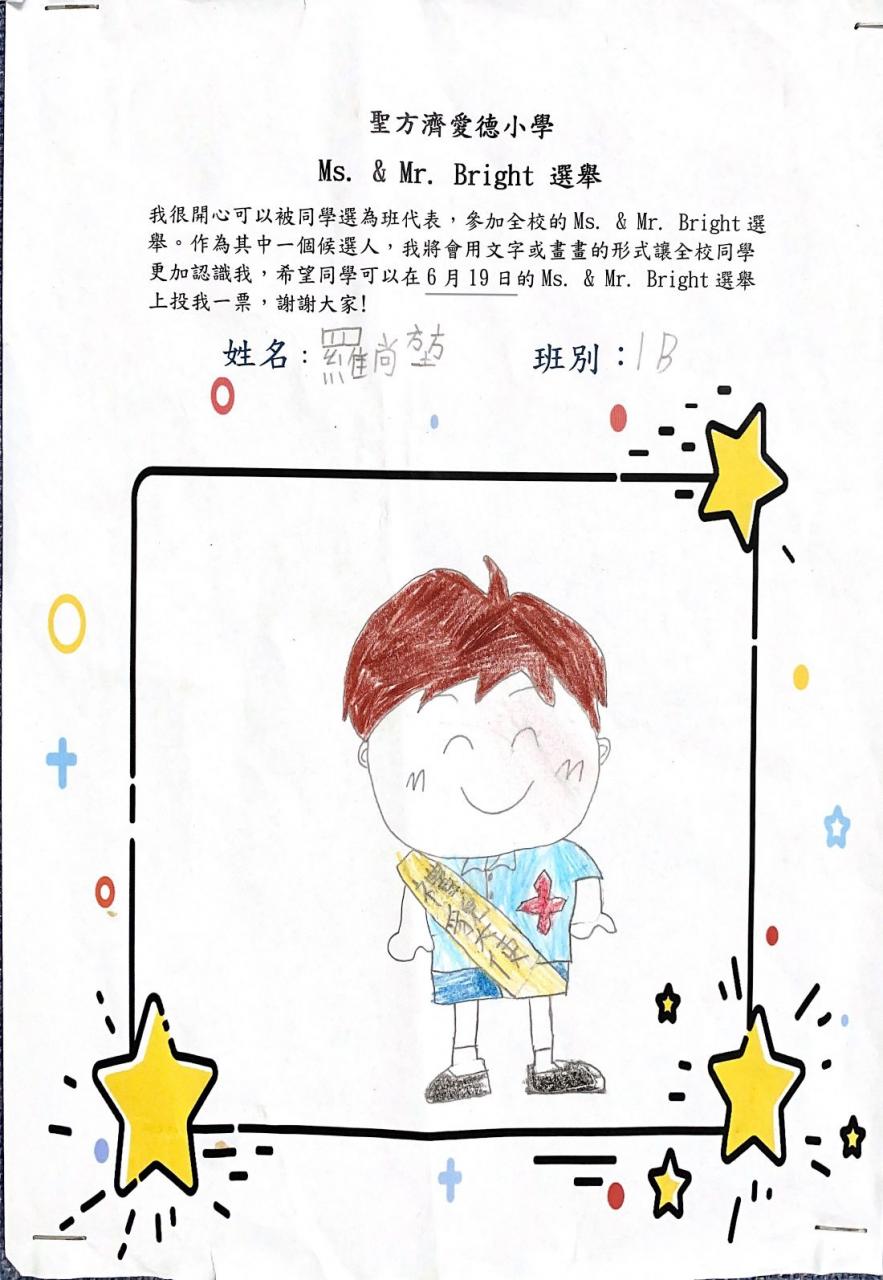 聖方濟愛德小學
Ms. & Mr. Bright 選舉
我很開心可以被同學選為班代表，參加全校的 Ms. & Mr. Bright 選
舉。作為其中一個候選人，我將會用文字或畫畫的形式讓全校同學
更加認識我，希望同學可以在 6 月 19 日的 Ms. & Mr. Bright 選舉
上投我一票，謝謝大家!
姓名：羅尚堃 班別：1B